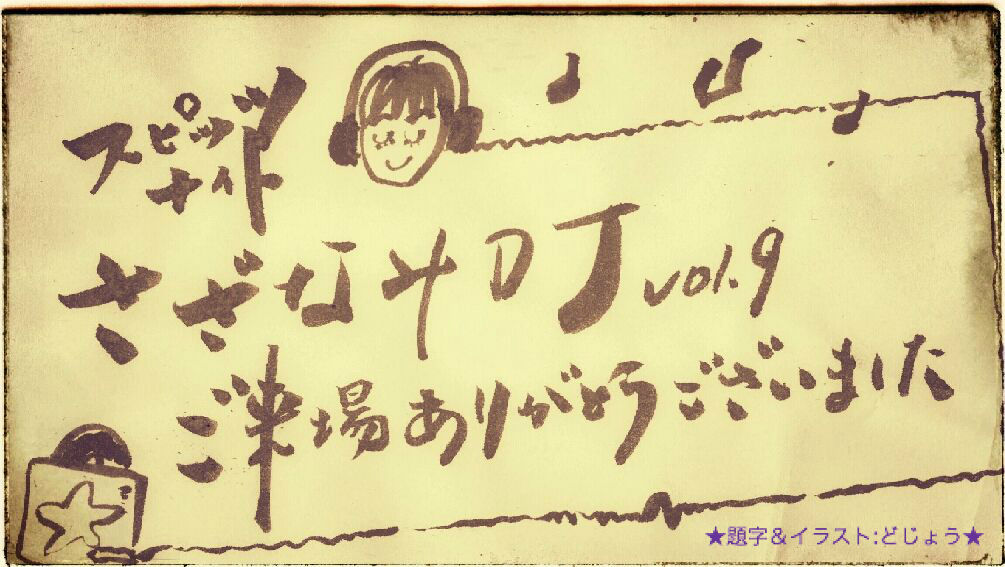 スピッツ
ナイト
さざなみDJ vol.9
ご来場ありがとうございました
★題字＆イラスト:どじょう★